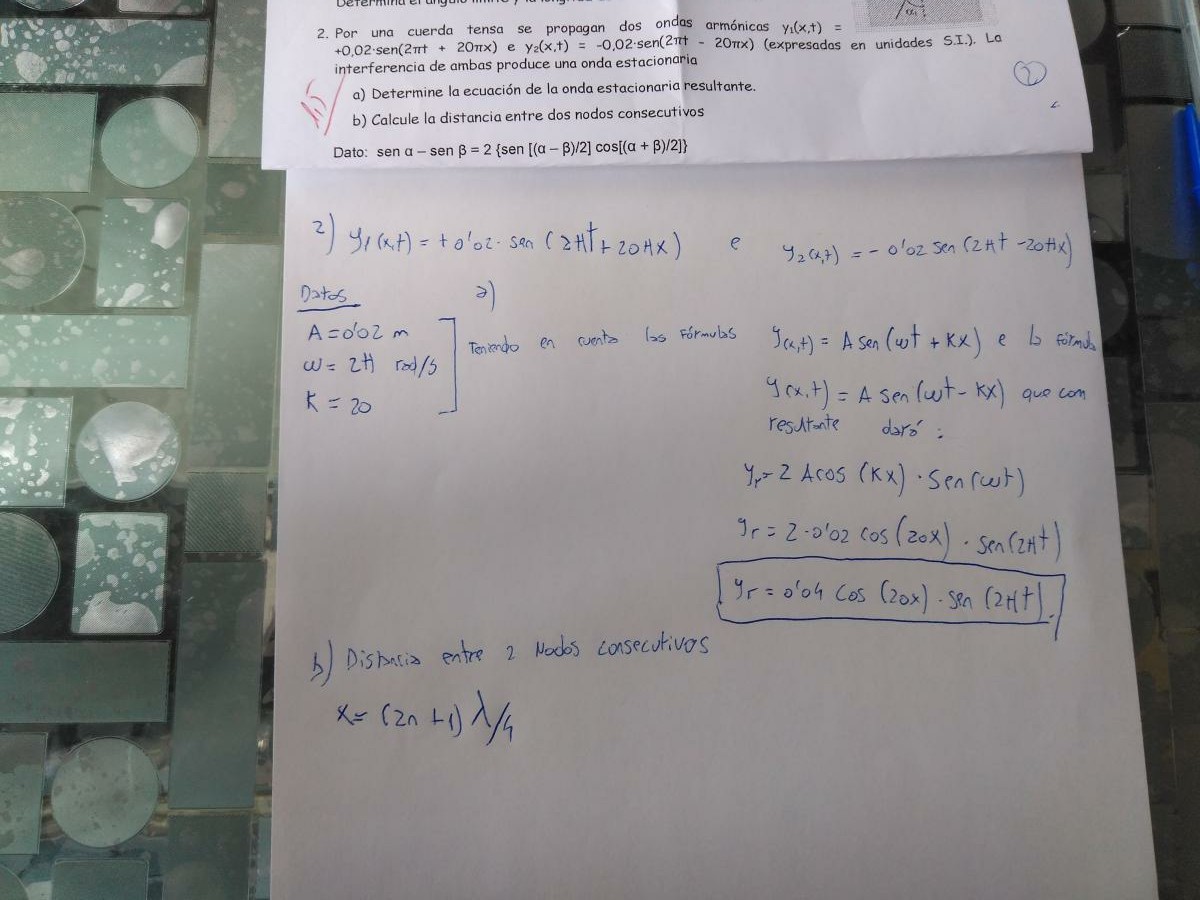 Determina el ángulo límite y la longitud
α₁
2. Por una cuerda tensa se propagan dos ondas armónicas y₁(x,t) =
+0,02·sen(2πt + 20πx) e y₂(x,t) = -0,02·sen(2πt - 20πx) (expresadas en unidades S.I.). La
interferencia de ambas produce una onda estacionaria
2
a) Determine la ecuación de la onda estacionaria resultante.
b) Calcule la distancia entre dos nodos consecutivos
Dato: sen α – sen β = 2 {sen [(α – β)/2] cos[(α + β)/2]}
2) y₁(x,t) = +0'02· sen (2πt + 20πx) e y₂(x,t) = - 0'02 sen (2πt - 20πx)
Datos a)
A = 0'02 m
ω = 2π rad/s
K = 20
Teniendo en cuenta las fórmulas y(x,t) = A sen (ωt + Kx) e la fórmula
y(x,t) = A sen (ωt - Kx) que com
resultante dará:
yr = 2 A cos (Kx) · sen (ωt)
yr = 2·0'02 cos (20x) · sen (2πt)
yr = 0'04 cos (20x) · sen (2πt).
b) Distancia entre 2 Nodos consecutivos
x = (2n + 1) λ/4